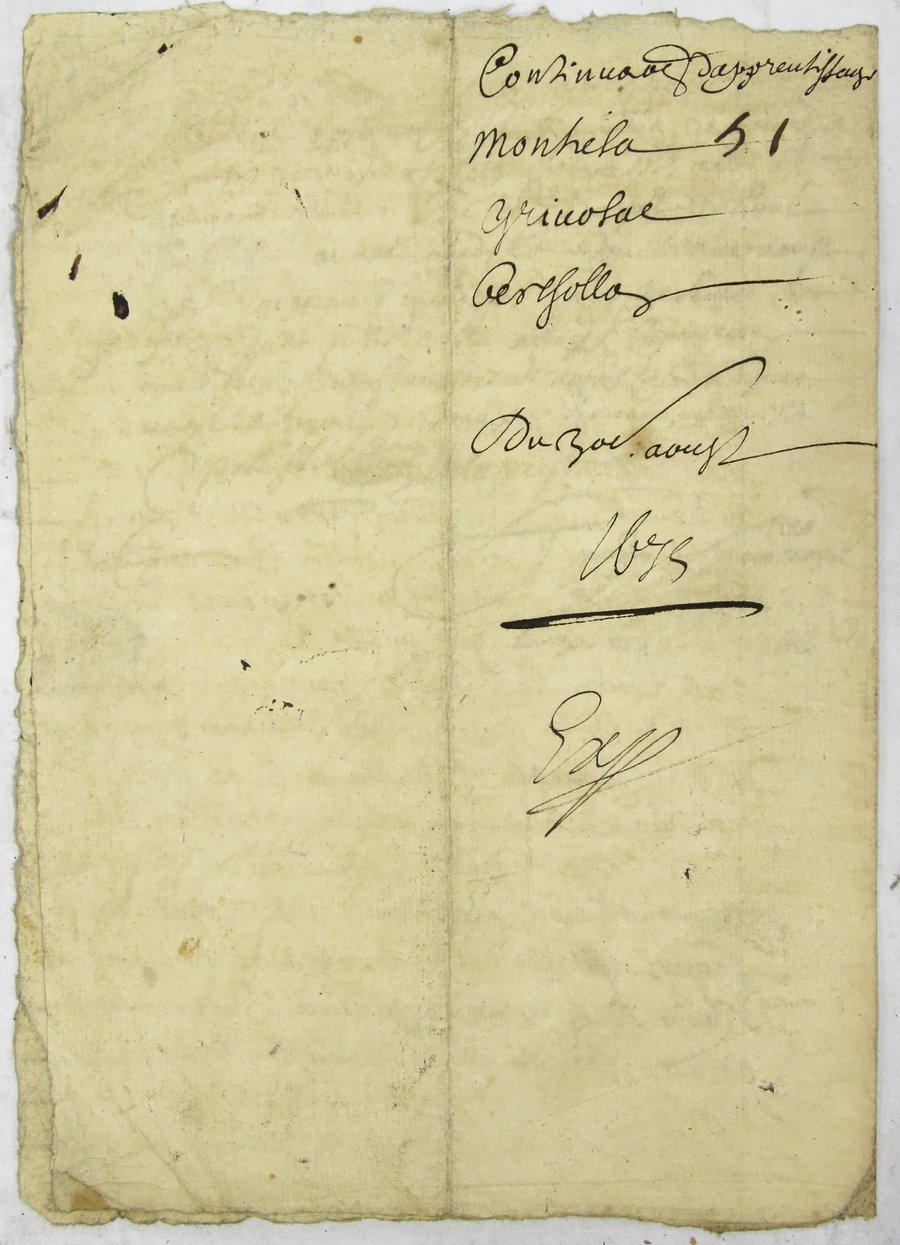 Continuaon d'apprentissage
Montiela 51
Grivolae
Berthollo
Du 30e. aoust
1675
Exp